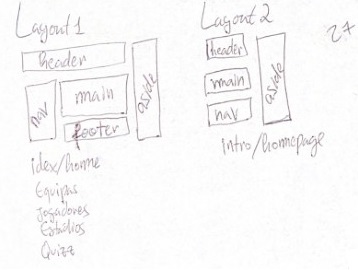 Layout 1
header
nav
main
footer
aside
idex/home
Equipas
Jogadores
Estádios
Quizz
Layout 2
header
main
nav
aside
intro/homepage